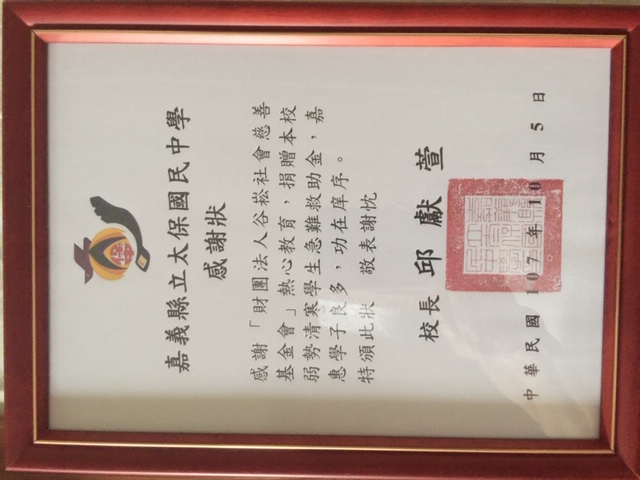 嘉義縣立太保國民中學
感謝狀
感謝「財團法人谷松社會慈善
基金會」熱心教育，捐贈本校
弱勢清寒學生急難救助金，嘉
惠學子良多，功在庠序。
特頒此狀 敬表謝忱
校長 邱獻萱
中華民國 107 年 10 月 5 日